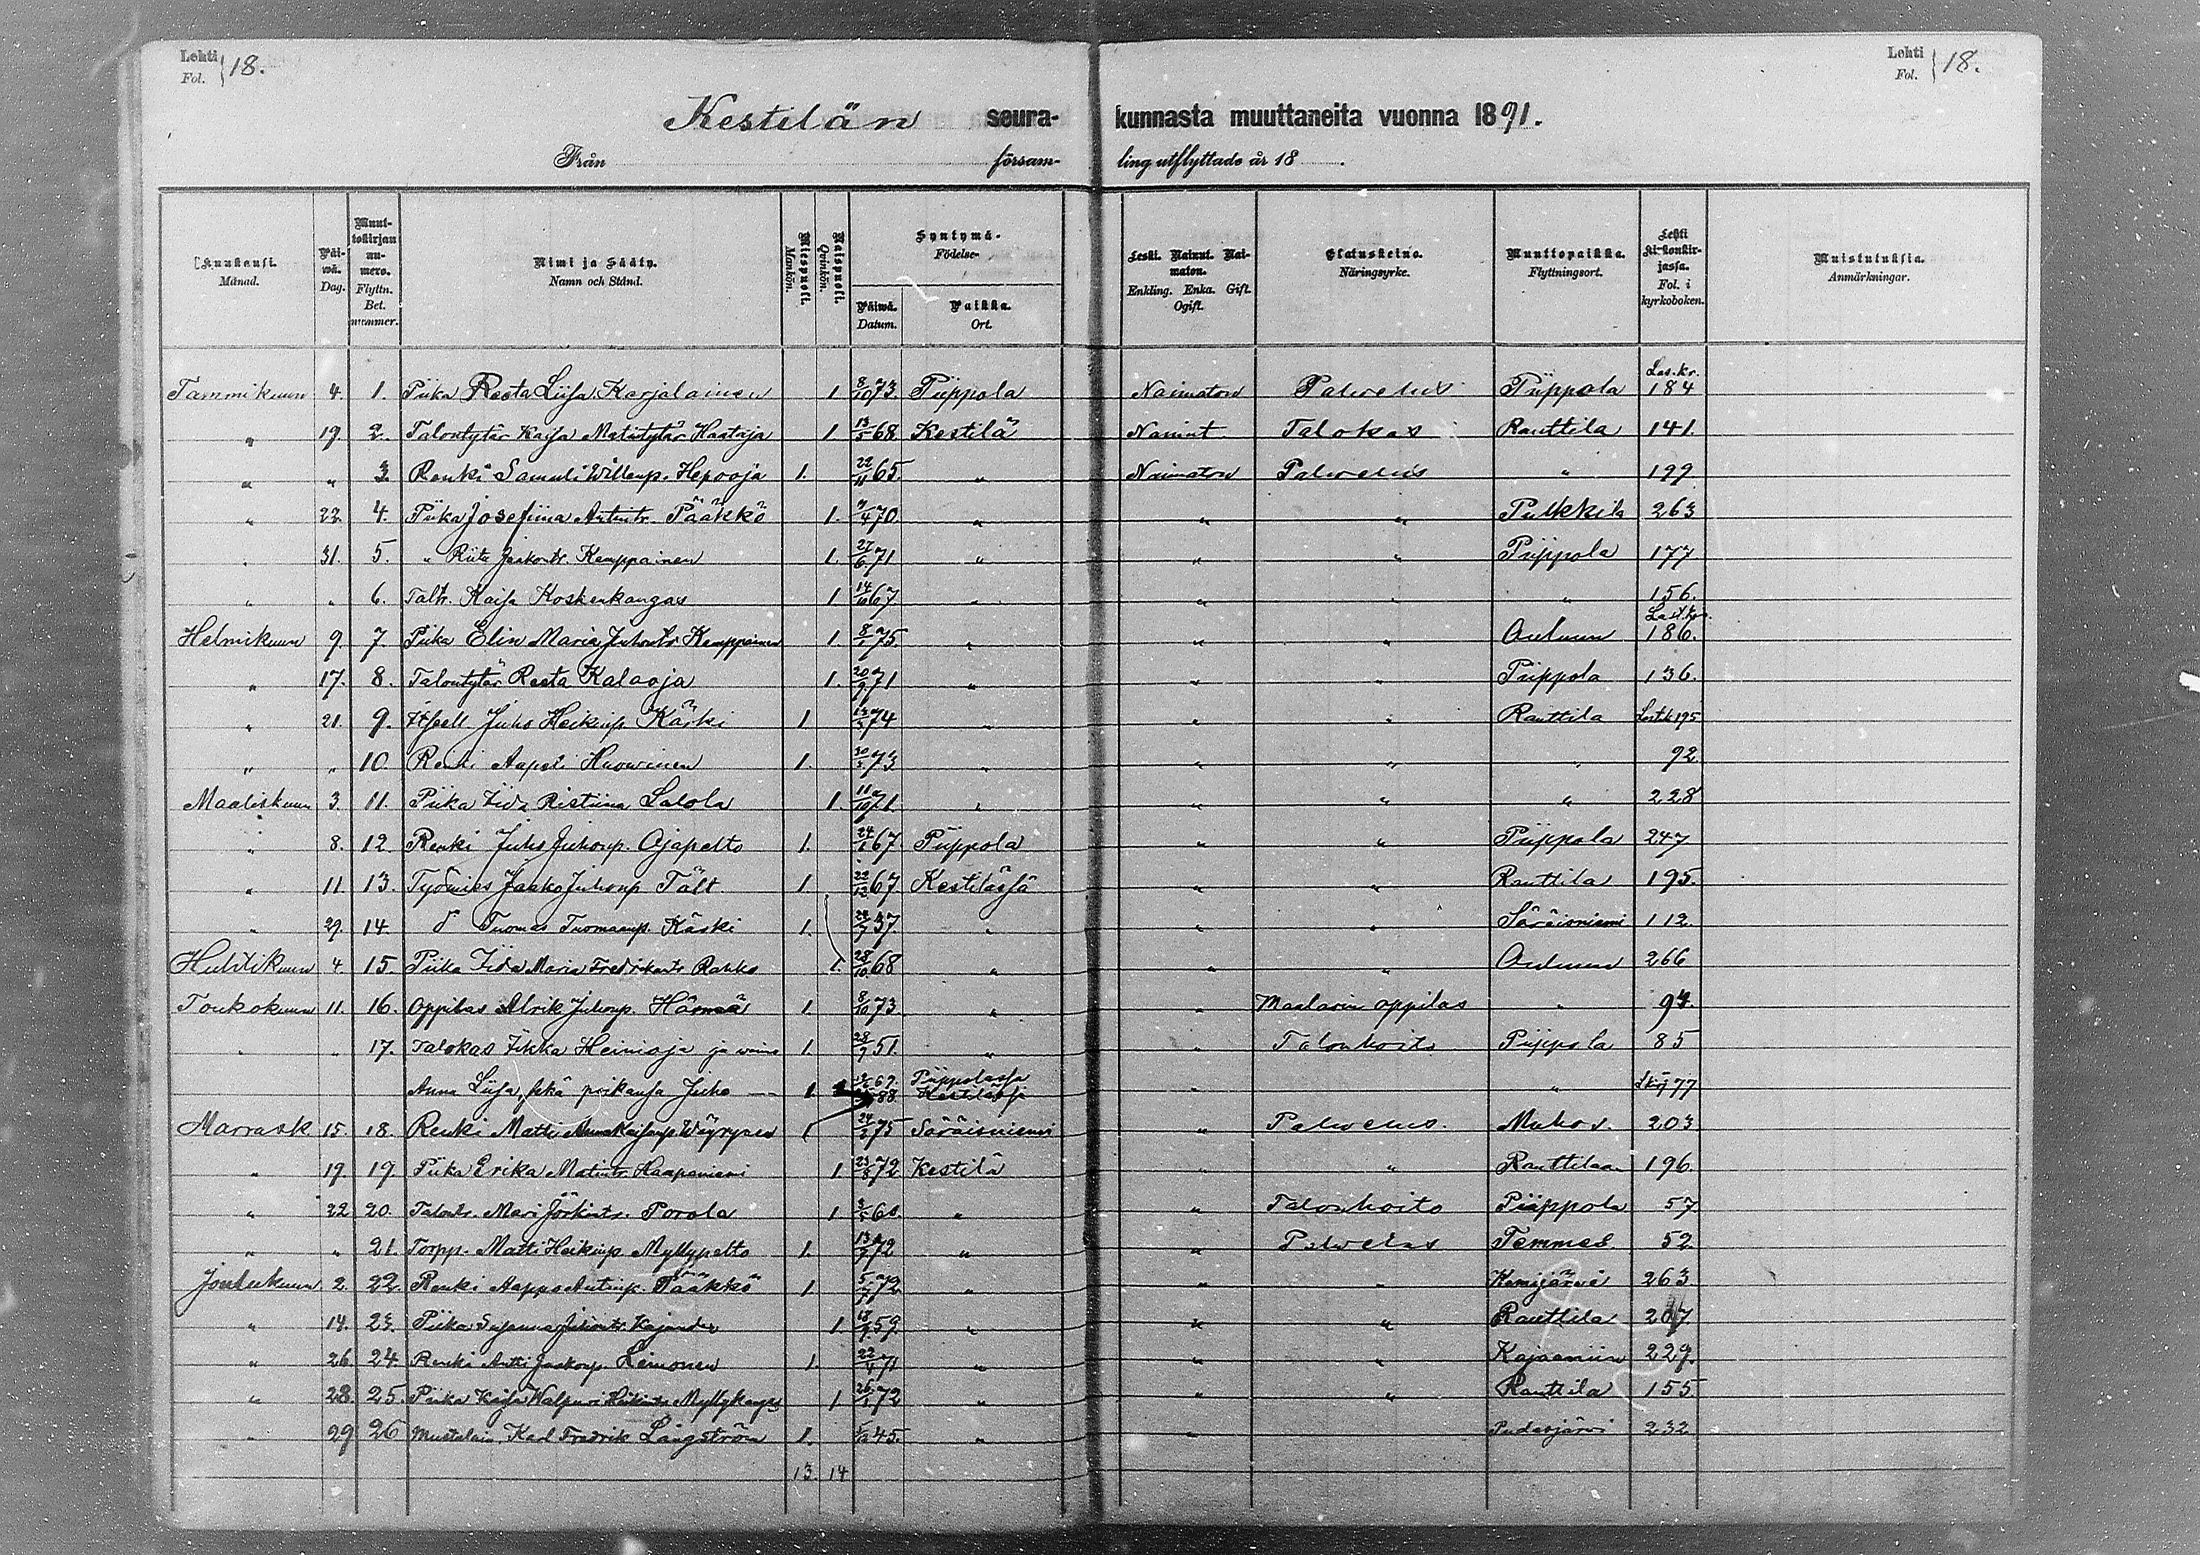 Lehti Fol. 18. Lehti Fol. 18.
Kestilän seurakunnasta muuttaneita vuonna 1891.
Från församling utflyttade år 18
Kuukausi. Månad. Päiwä. Dag. Muuttokirjan numero. Flyttn. Bet. nummer. Nimi ja Sääty. Namn och Stånd. Miespuoli. Mankön. Naispuoli. Qvinkön. Syntymä- Födelse- Päiwä. Datum. Paikka. Ort. Leski. Nainut. Naimaton. Enkling. Enka. Gift. Ogift. Elatuskeino. Näringsyrke. Muuttopaikka. Flyttningsort. Lehti kirkonkirjassa. Fol. i kyrkoboken. Muistutuksia. Anmärkningar.
Tammikuun 4. 1. Piika Reeta Liisa Karjalainen 1 8/10 73. Piippola Naimaton Palvelus Piippola Las.kr. 184
" 19. 2. Talontytär Kaisa Matintytär Haataja 1 13/5 68 Kestilä Nainut Talokas Rauttila 141.
" " 3. Renki Samuli Willenp. Hepooja 1. 22/11 65. " Naimaton Palvelus " 199
" 22. 4. Piika Josefiina Antintr. Pääkkö 1. 70. " " " Pulkkila 263
" 31. 5. " Riita Jaakontr. Kemppainen 1. 27/6 71 " " " Piippola 177
" " 6. Taltr. Kaisa Koskenkangas 1 14/10 67 " " " " 156.
Helmikuun 9. 7. Piika Elin Maria Juhontr. Kemppainen 1. 75. " " " Ouluun 186.
" 17. 8. Talontytär Reeta Kalaoja 1. 20/9 71 " " " Piippola 136.
" 21. 9. Itsell. Juho Heikinp. Käski 1 74 " " " Rauttila 195
" " 10. Renki Aapeli Huowinen 1. 73 " " " " 92
Maaliskuun 3. 11. Piika Iida Ristiina Lalola 1. 11/10 71. " " " " 228
" 8. 12. Renki Juho Juhonp. Ojapelto 1. 24/1 67 Piippola " " Piippola 247
" 11. 13. Työmies Jaako Juhonp Tält 1 22/12 67 Kestilässä " " Rauttila 195.
" 29. 14 Tuomas Tuomaanp. Käski 1. 37. " " " Säräisniemi 112.
Huhtikuun 4 15. Piika Iida Maria Fredrikintr Rahko 1. 28/10 68 " " " Ouluun 266
Toukokuun 11. 16. Oppilas Alrik Juhonp. Härmä 1. 8/10 73. " " Maalarin oppilas " 94.
" " 17. Talokas Iikka Heinioja ja waimo 1. 51. " " Talonhoito Piippola 85
Anna Liisa, sekä poikansa Juho 1. 1 69. 88. Piippolassa Kestilässä " " 77
Marrask 15. 18. Renki Matti Annakaisanp. Wäyrynen 1 75 Säräisniemi " Palvelus. Muhos. 203
" 19. 19. Piika Erika Matintr. Haapaniemi 1. 23/8 72 Kestilä " " Rauttilaan 196.
" 22 20. Talontr. Mari Jörkintr. Porola 1 " " Talonhoito Piippola 57
" " 21. Torpp. Matti Heikinp Myllypelto 1. 72 " " Palvelus Temmes 52
Joulukuun 2. 22. Renki Aappo Antinp. Pääkkö 1 72 " " " Kemijärvi 263
" 14. 23. Piika Susanna Juhontr. Kajander 1. 59. " " " Rauttila 207
" 26. 24. Renki Antti Jaakonp. Leinonen 1. 22/4 71 " " " Kajaaniin 229.
" 28. 25. Piika Kaisa Walpuri Heikintr Myllykangas 1 72 " " " Rauttila 155
" 29 26 Mustalain. Karl Fredrik Långström 1. 45. " " Pudasjärvi 232
13. 14